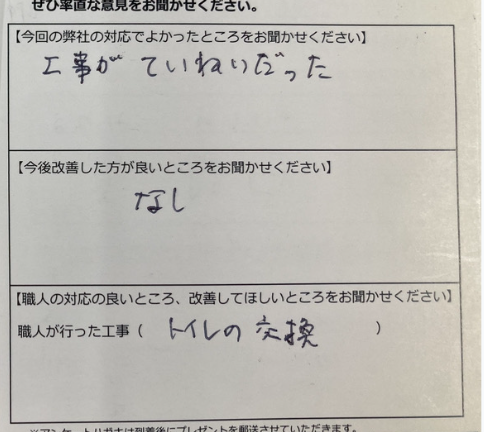 ぜひ率直な意見をお聞かせください。
【今回の弊社の対応でよかったところをお聞かせください】
工事が ていねいだった
【今後改善した方が良いところをお聞かせください】
なし
【職人の対応の良いところ、改善してほしいところをお聞かせください】
職人が行った工事（ トイレの交換 ）
※アンケートハガキは到着後にプレゼントを郵送させていただきます。